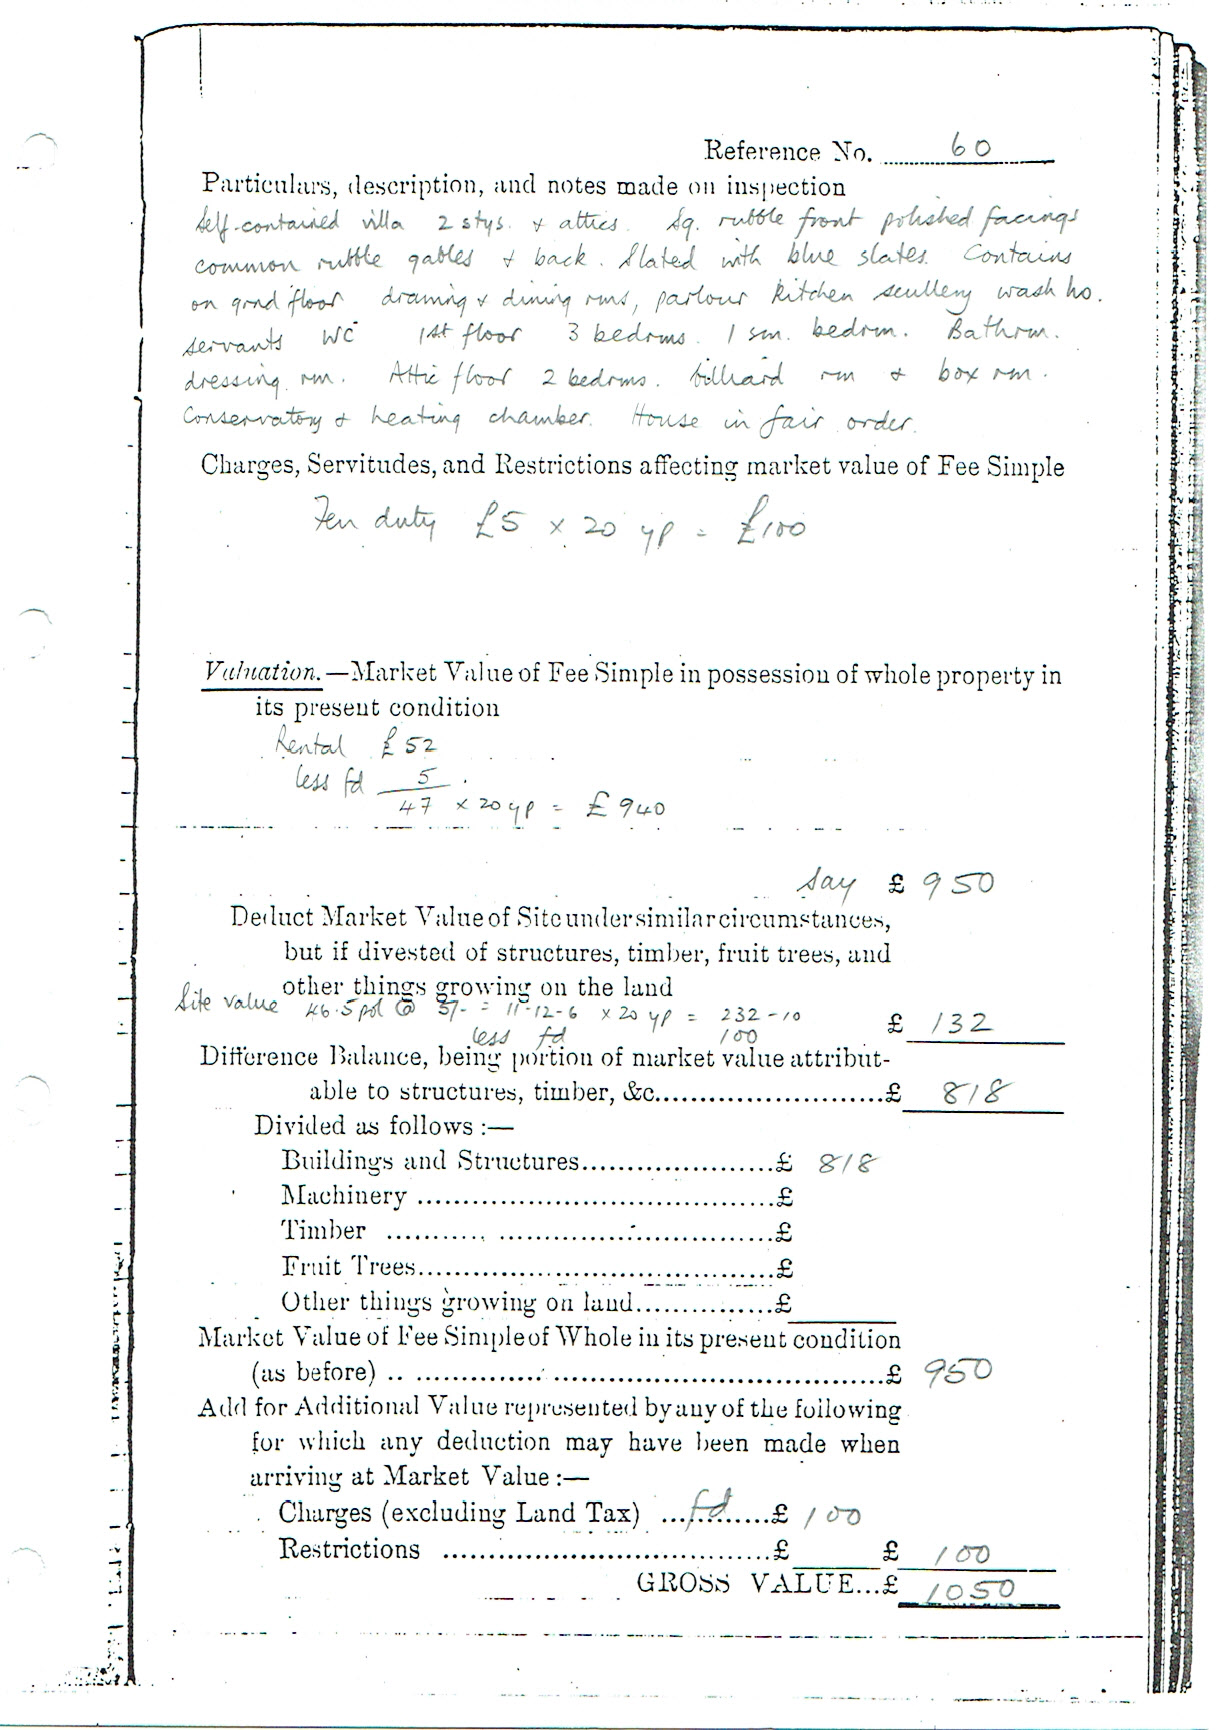 Reference No. 60
Particulars, description, and notes made on inspection
Self-contained villa 2 stys. & attics. Sq. rubble front polished facings
common rubble gables & back. Slated with blue slates. Contains
on grnd floor drawing & dining rms, parlour kitchen scullery wash ho.
servants WC 1st floor 3 bedrms. 1 sm. bedrm. Bathrm.
dressing rm. Attic floor 2 bedrms. billiard rm & box rm.
Conservatory & heating chamber. House in fair order.
Charges, Servitudes, and Restrictions affecting market value of Fee Simple
Feu duty £5 x 20 yp = £100
Valuation.—Market Value of Fee Simple in possession of whole property in
its present condition
Rental £52
less fd 5
47 x 20 yp = £940
say £ 950
Deduct Market Value of Site under similar circumstances,
but if divested of structures, timber, fruit trees, and
other things growing on the land
Site value 46.5 pol @ 5/- = 11-12-6 x 20 yp = 232-10
less fd 100 £ 132
Difference Balance, being portion of market value attribut-
able to structures, timber, &c........................£ 818
Divided as follows :—
Buildings and Structures......................£ 818
Machinery ........................................£
Timber ............................................£
Fruit Trees.........................................£
Other things growing on land................£
Market Value of Fee Simple of Whole in its present condition
(as before) .. ..................................................£ 950
Add for Additional Value represented by any of the following
for which any deduction may have been made when
arriving at Market Value :—
Charges (excluding Land Tax) ...fd.......£ 100
Restrictions ......................................£ £ 100
GROSS VALUE...£ 1050